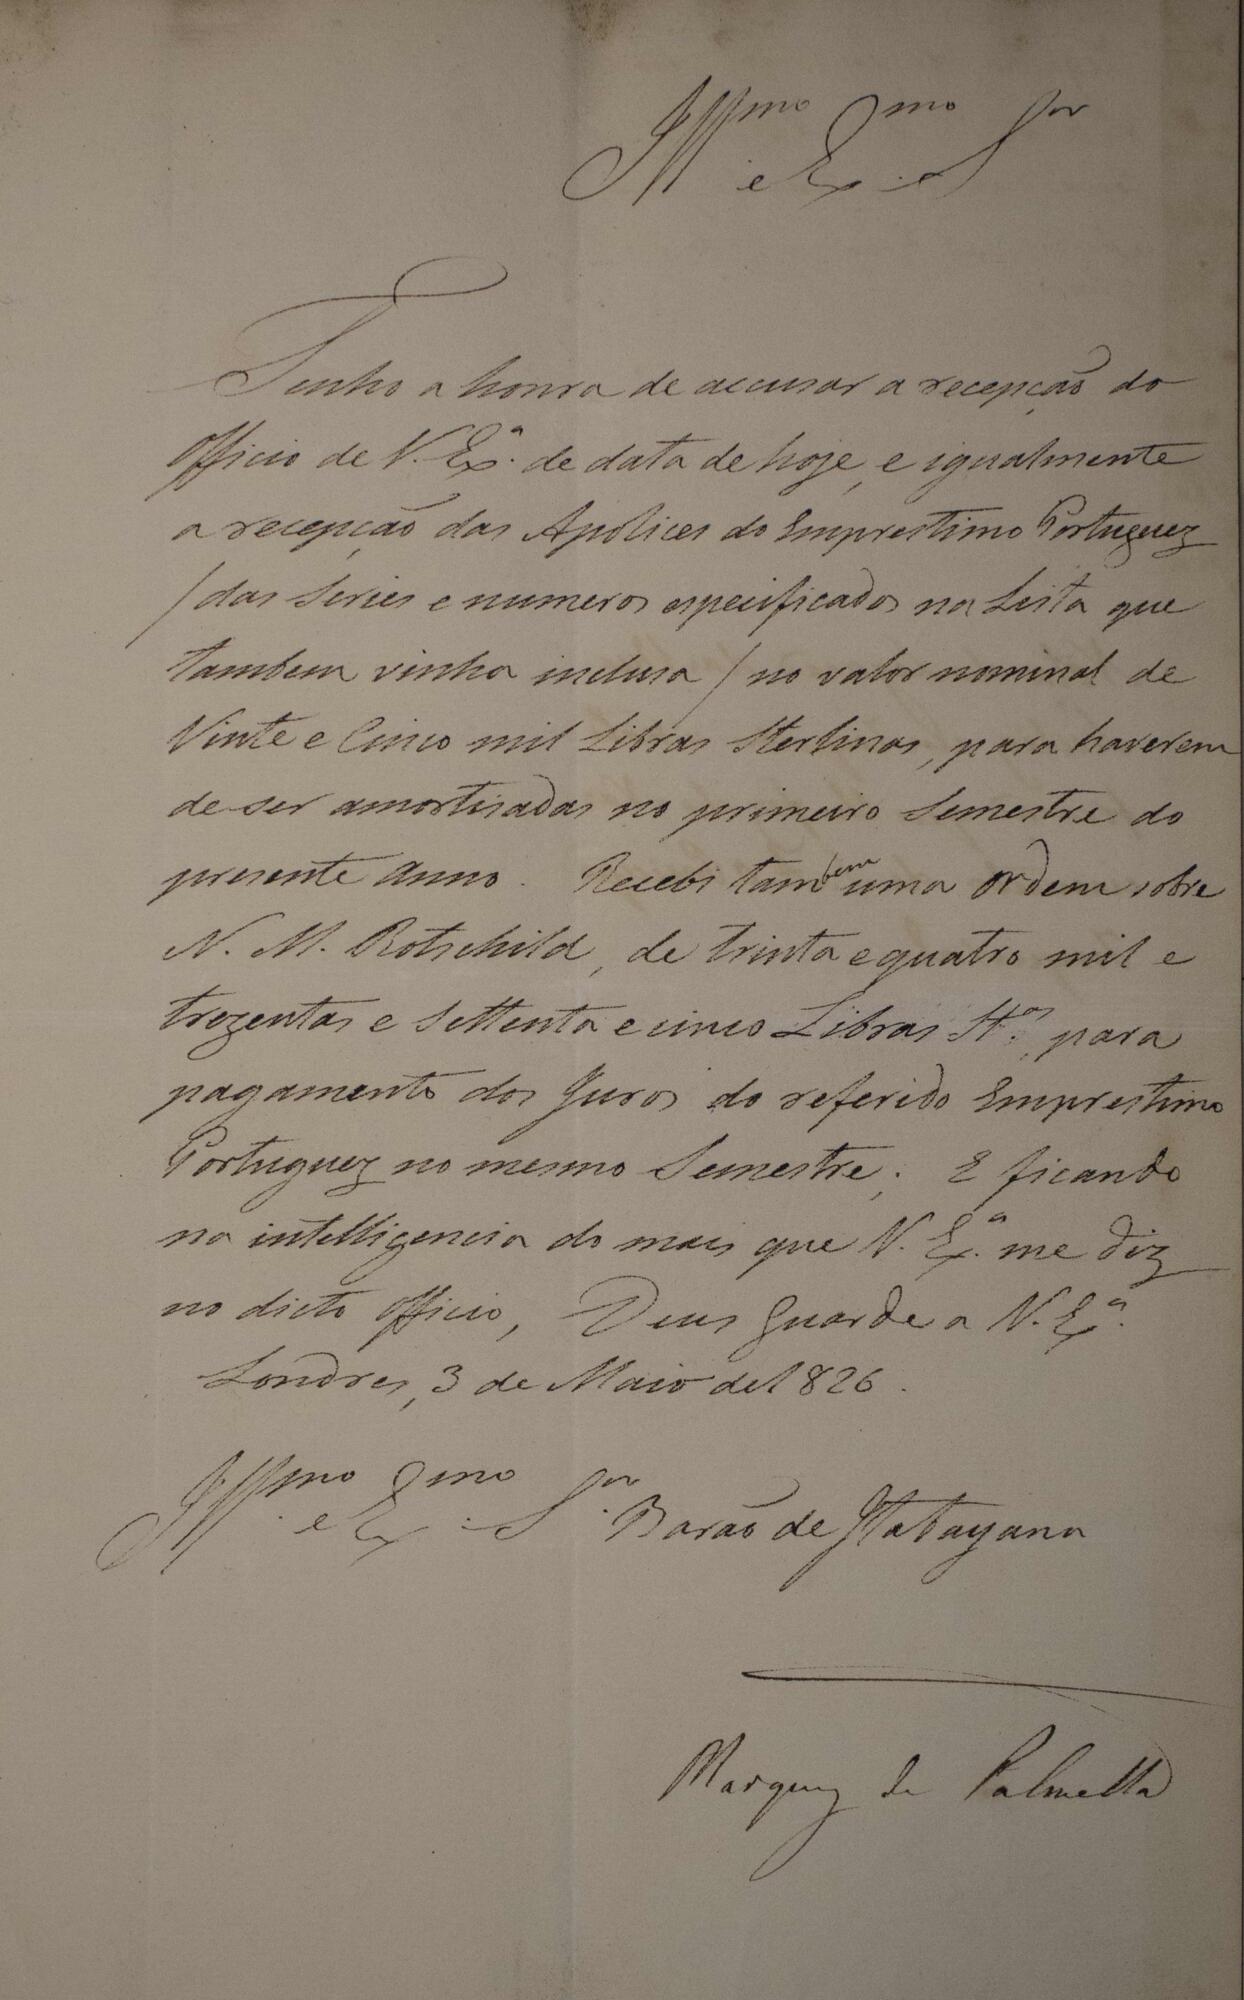 Ill.mo e Ex.mo S.or
Tenho a honra de accusar a recepção do
Officio de V. Ex.a de data de hoje, e igualmente
a recepção das Apolices do Emprestimo Portuguez
/das Series e numeros especificados na Lista que
tambem vinha inclusa/ no valor nominal de
Vinte e Cinco mil Libras Sterlinas, para haverem
de ser amortisadas no primeiro Semestre do
presente Anno. Recebi tambem uma Ordem sobre
N. M. Rotschild, de trinta e quatro mil e
trezentas e settenta e cinco Libras St.as, para
pagamento dos Juros do referido Emprestimo
Portuguez no mesmo Semestre; E ficando
na intelligencia do mais que V. Ex.a me diz
no dicto Officio, Deus Guarde a V. Ex.a
Londres, 3 de Maio de 1826.
Ill.mo e Ex.mo S.or Barão de Itabayana
Marquez de Palmella